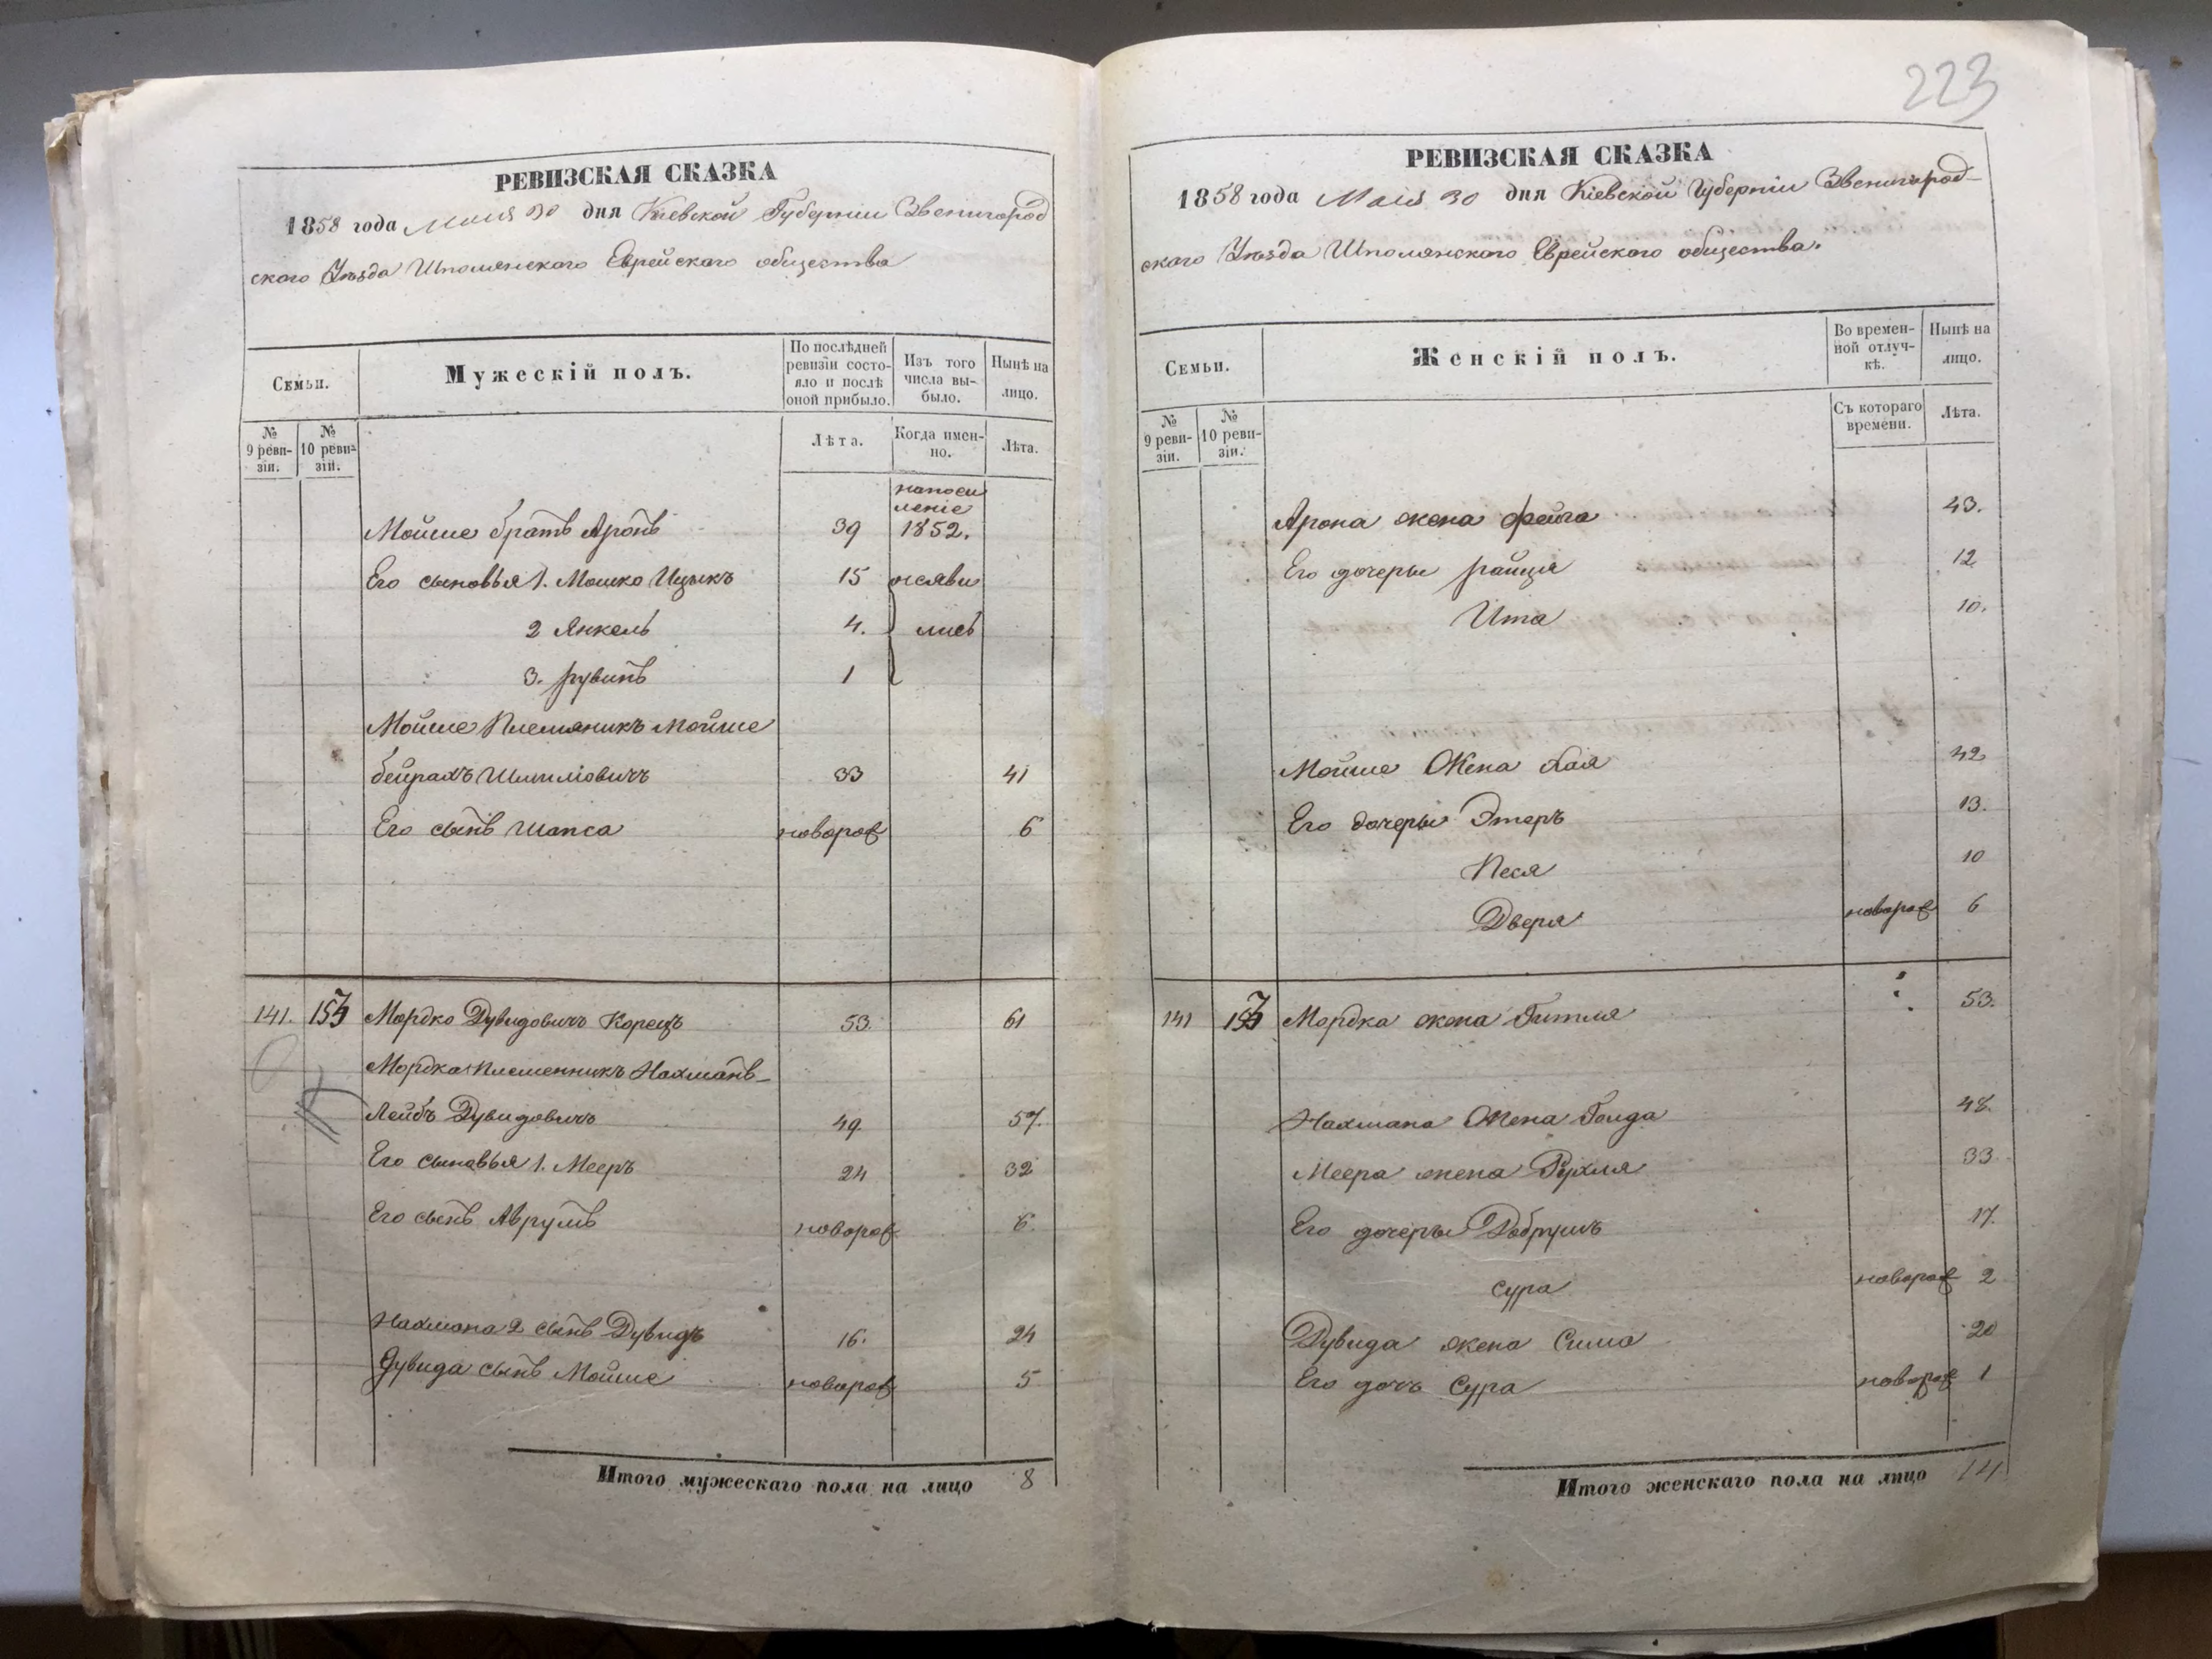 РЕВИЗСКАЯ СКАЗКА
1858 года Мая 30 дня Кіевской Губерніи Звенигород
ского Уѣзда Шполянского Еврейскаго общества
Семьи.
Мужескій полъ.
По послѣдней ревизіи состояло и послѣ оной прибыло.
Изъ того числа выбыло.
Нынѣ на лицо.
№ 9 ревизіи.
№ 10 ревизіи.
Лѣта.
Когда именно.
Лѣта.
Мойше братъ Аронъ 39 1852.
Его сыновья 1. Мошко Ицыкъ 15 неяви
2 Янкель 4. лись
3. Рувинъ 1
Мойше Племяникъ Мойше
Бейрахъ Шмиліовичъ 33 41
Его сынъ Шапса новорож 6
141. 157 Мордко Дувидовичъ Корецъ 53. 61
Мордка Племенникъ Нахманъ-
Лейбъ Дувидовичъ 49. 57.
Его сыновья 1. Мееръ 24 32
Его сынъ Аврумъ новорож 6.
Нахмана 2 сынъ Дувидъ 16. 24
Дувида сынъ Мойше новорож 5
Итого мужескаго пола на лицо 8
223
РЕВИЗСКАЯ СКАЗКА
1858 года Мая 30 дня Кіевской Губерніи Звенигород-
ского Уѣзда Шполянского Еврейского общества.
Семьи.
Женскій полъ.
Во временной отлучкѣ.
Нынѣ на лицо.
№ 9 ревизіи.
№ 10 ревизіи.
Съ котораго времени.
Лѣта.
Арона жена Фейга 43.
Его дочеры Райця 12
Ита 10.
Мойше Жена Хая 42
Его дочеры Этеръ 13.
Песя 10
Двера новорож 6
141 157 Мордка жена Гитля 53.
Нахмана Жена Голда 48.
Меера жена Рухля 33
Его дочеры Добрушъ 17.
Сура новорож 2
Дувида жена Сима 20
Его дочь Сура новорож 1
Итого женскаго пола на лицо 14